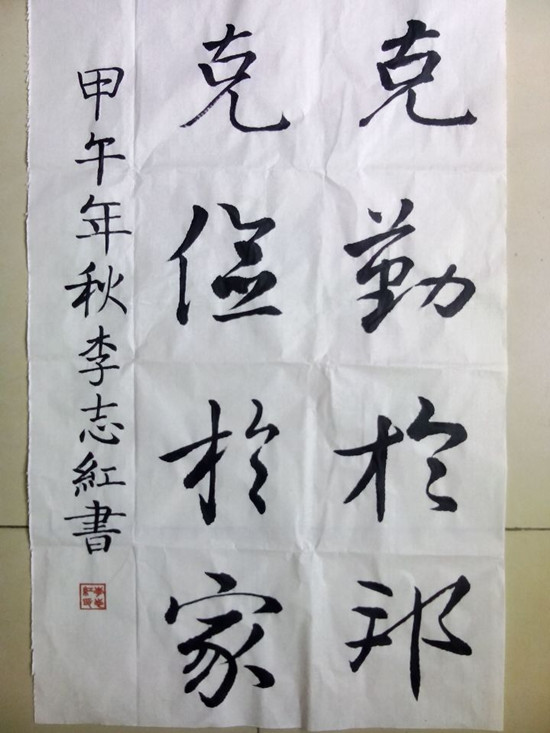 克勤於邦
克儉於家
甲午年秋李志紅書